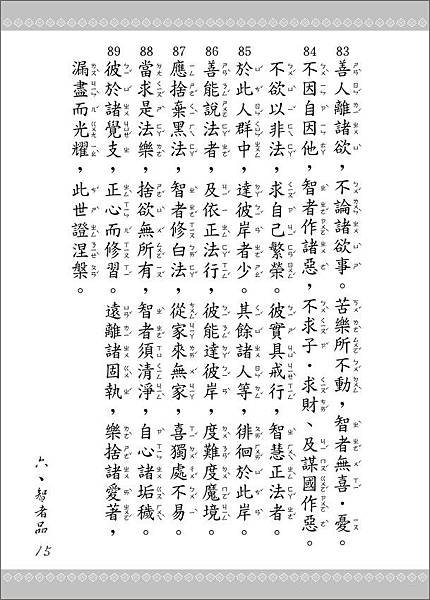 83 善人離諸欲，不論諸欲事。苦樂所不動，智者無喜・憂。
84 不因自因他，智者作諸惡，不求子・求財、及謀國作惡。
不欲以非法，求自己繁榮。彼實具戒行，智慧正法者。
85 於此人群中，達彼岸者少。其餘諸人等，徘徊於此岸。
86 善能說法者，及依正法行，彼能達彼岸，度難度魔境。
87 應捨棄黑法，智者修白法，從家來無家，喜獨處不易。
88 當求是法樂，捨欲無所有，智者須清淨，自心諸垢穢。
89 彼於諸覺支，正心而修習。遠離諸固執，樂捨諸愛著，
漏盡而光耀，此世證涅槃。
六、智者品
15